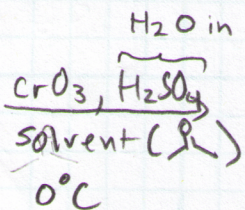 H2O in
CrO3, H2SO4
solvent ( )
0°C